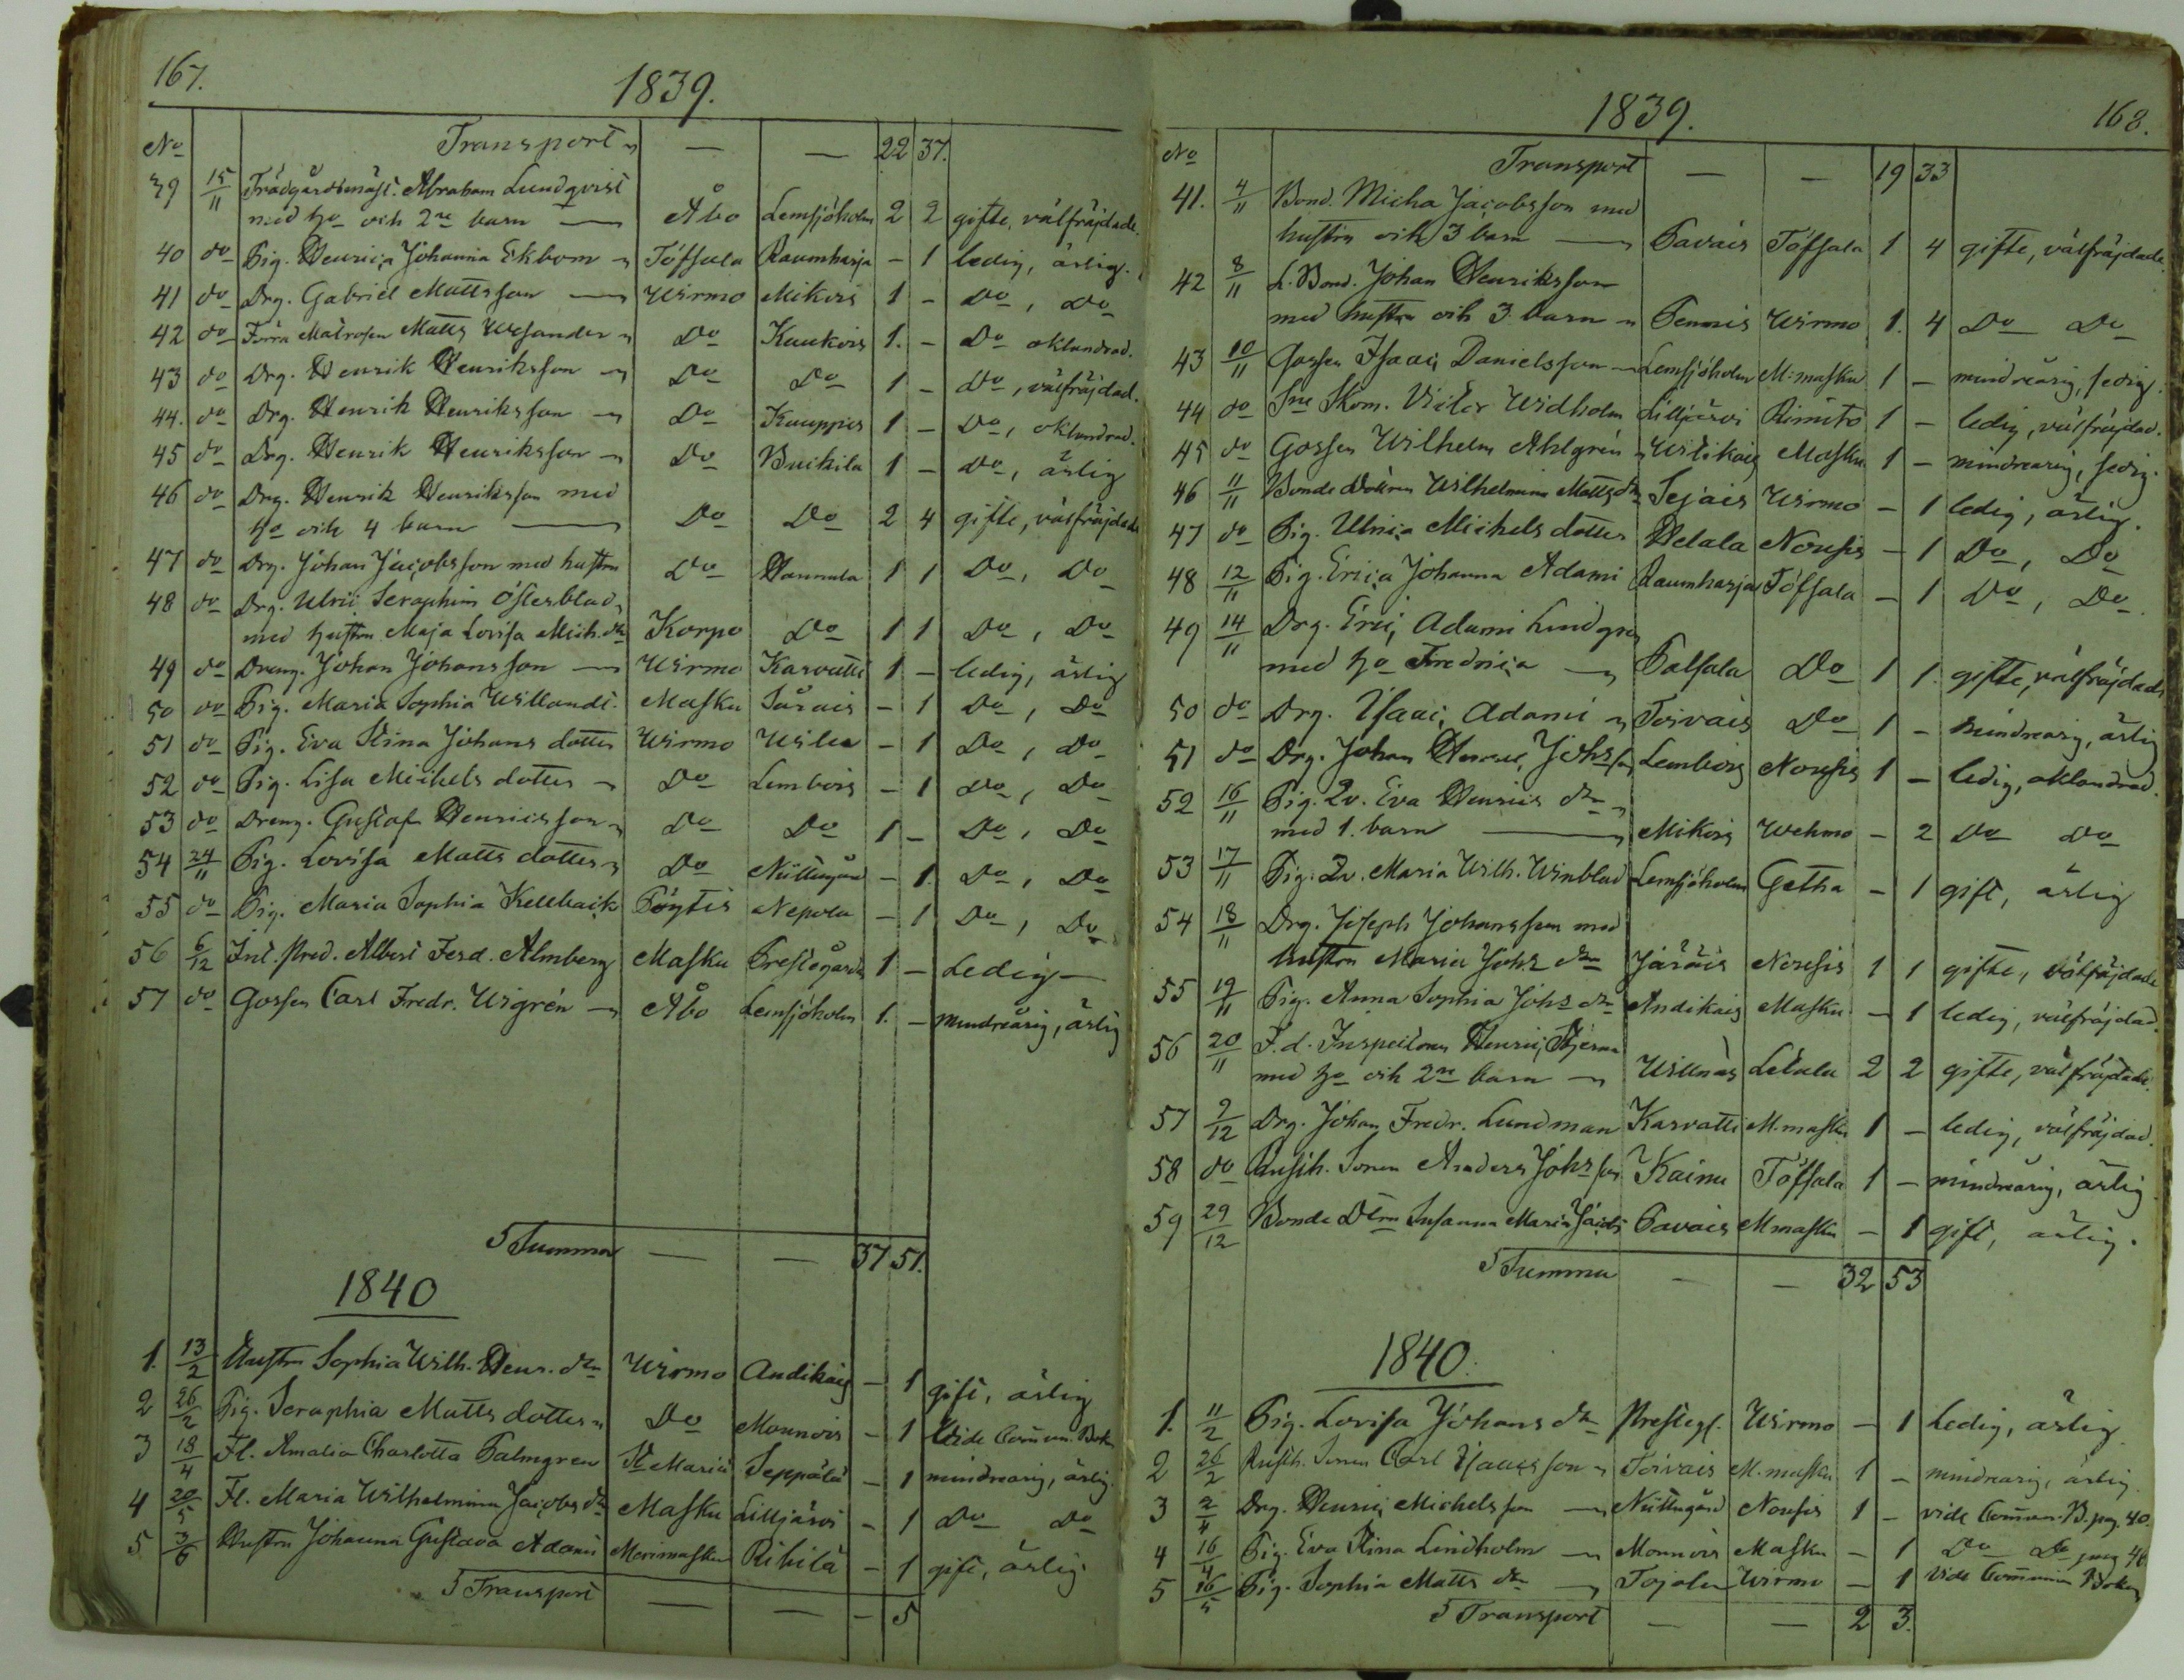 167.
1839.
No Transport — — 22 37.
39 15/11 Trädgårdsmäst. Abraham Lundqvist
med ho och 2ne barn — Åbo Lemsjöholm 2 2 gifte, välfräjdade.
40 do Pig. Henrica Johanna Ekbom Töfsala Raumharja - 1 ledig, ärlig.
41 do Drg. Gabriel Mattsson — Wirmo Mikois 1 - Do, Do
42 do Förra Matrosen Matts Wesander Do Kaukois 1. - Do oklandrad.
43 do Drg. Henrik Henriksson Do Do 1 - Do, välfräjdad.
44. do Drg. Henrik Henriksson Do Kauppis 1 - Do, oklandrad.
45 do Drg. Henrik Henriksson Do 1 - Do, ärlig
46 do Drg. Henrik Henriksson med
ho och 4 barn — Do Do 2 4 gifte, välfräjdade
47 do Drg. Johan Jacobsson med hustru Do Hannula 1 1 Do, Do
48 do Drg. Ulric Seraphim Österblad
med hustru Maja Lovisa Mich. dr Korpo Do 1 1 Do, Do
49 do Dreng. Johan Johansson — Wirmo Karvatti 1 - ledig, ärlig
50 do Pig. Maria Sophia Willandt. Masku Särais - 1 Do, Do
51 do Pig. Eva Stina Johans dotter Wirmo Wilu - 1 Do, Do
52 do Pig. Lisa Michels dotter Do Lembois - 1 Do, Do
53 do Dreng. Gustaf Henricsson Do Do 1 - Do, Do
54 24/11 Pig. Lovisa Matts dotter Do Nuttugård - 1. Do, Do
55 do Pig. Maria Sophia Pöytis Nepola - 1 Do, Do
56 6/12 Inl. Pred. Albert Ferd. Almberg Masku Prestegården 1 - Ledig —
57 do Gossen Carl Fredr. Wigrén Åbo Lemsjöholm 1. - mindreårig, ärlig
Summa — — 37 51.
1840
1. 13/2 Hustru Sophia Wilh. Henr. dr Wirmo Andikais - 1 gift, ärlig
2 26/2 Pig. Seraphia Matts dotter Do Monnois - 1 Vide Commun. Bok
3 18/4 Fl. Amalia Charlotta Palmgren St Mariæ Seppälä - 1 mindreårig, ärlig
4 20/5 Fl. Maria Wilhelmina Jacobs dr Masku Lilljärvi - 1 Do Do
5 3/6 Hustru Johanna Gustava Adami Merimasku Rihilä - 1 gift, ärlig
Transport — — - 5
1839.
168.
No Transport — — 19 33
41. 4/11 Bond. Micha Jacobsson med
hustru och 3 barn — Pavais Töfsala 1 4 gifte, välfräjdade.
42 8/11 L. Bond. Johan Henriksson
med hustru och 3 barn Pennis Wirmo 1. 4 Do Do
43 10/11 Gossen Isaac Danielsson Lemsjöholm M:masku 1 - mindreårig, fedig.
44 do Skom. Victor Widholm Lilljärvi Rimito 1 - ledig, välfräjdad.
45 do Gossen Wilhelm Ahlgrén Masku 1 - mindreårig, fedig.
46 11/11 Bonde dottren Wilhelmina Matts dr Sejais Wirmo - 1 ledig, ärlig.
47 do Pig. Ulrica Michels dotter Nousis - 1 Do, Do
48 12/11 Pig. Erica Johanna Adami Raumharja Töfsala - 1 Do, Do.
49 14/11 Drg. Eric Adami Lindgren
med ho Fredrica — Palsala Do 1 1. gifte, välfräjdade
50 do Drg. Isaac Adami Toivais Do 1 - mindreårig, ärlig
51 do Drg. Johan Henric Johsson Lembois Nousis 1 - ledig, oklandrad.
52 16/11 Pig. Qv. Eva Henrics dr
med 1. barn — Mikois Wehmo - 2 Do Do
53 17/11 Pig. Qv. Maria Wilh. Winblad Lemsjöholm Getha - 1 gift, ärlig
54 18/11 Drg. Joseph Johansson med
hustru Maria Johs dr Järäis Nousis 1 1 gifte, välfräjdade
55 19/11 Pig. Anna Sophia Johs dr Andikais Masku - 1 ledig, välfräjdad.
56 20/11 F.d. Inspectoren Henric
med ho och 2ne barn Willnäs Letala 2 2 gifte, välfräjdade.
57 9/12 Drg. Johan Fredr. Lundman Karvatti M.masku 1 - ledig, välfräjdad.
58 do Rusth. Sonen Anders Johsson Kainu Töfsala 1 - mindreårig, ärlig
59 29/12 Bonde Dtrn Susanna Maria Pavais Mmasku - 1 gift, ärlig.
Summa — — 32 53
1840.
1. 11/2 Pig. Lovisa Johans dr Presteg. Wirmo - 1 Ledig, ärlig
2 26/2 Rusth. Sonen Carl Isaacsson Toivais M.masku 1 - mindreårig, ärlig
3 2/4 Drg. Henric Michelsson Nuttugård Nousis 1 - vide Commun. B. pag. 40.
4 16/4 Pig. Eva Stina Lindholm Monnois Masku - 1 Do Do pag 46
5 16/5 Pig. Sophia Matts dr Tojala Wirmo - 1 Vide Commun Boken
Transport — — 2 3.